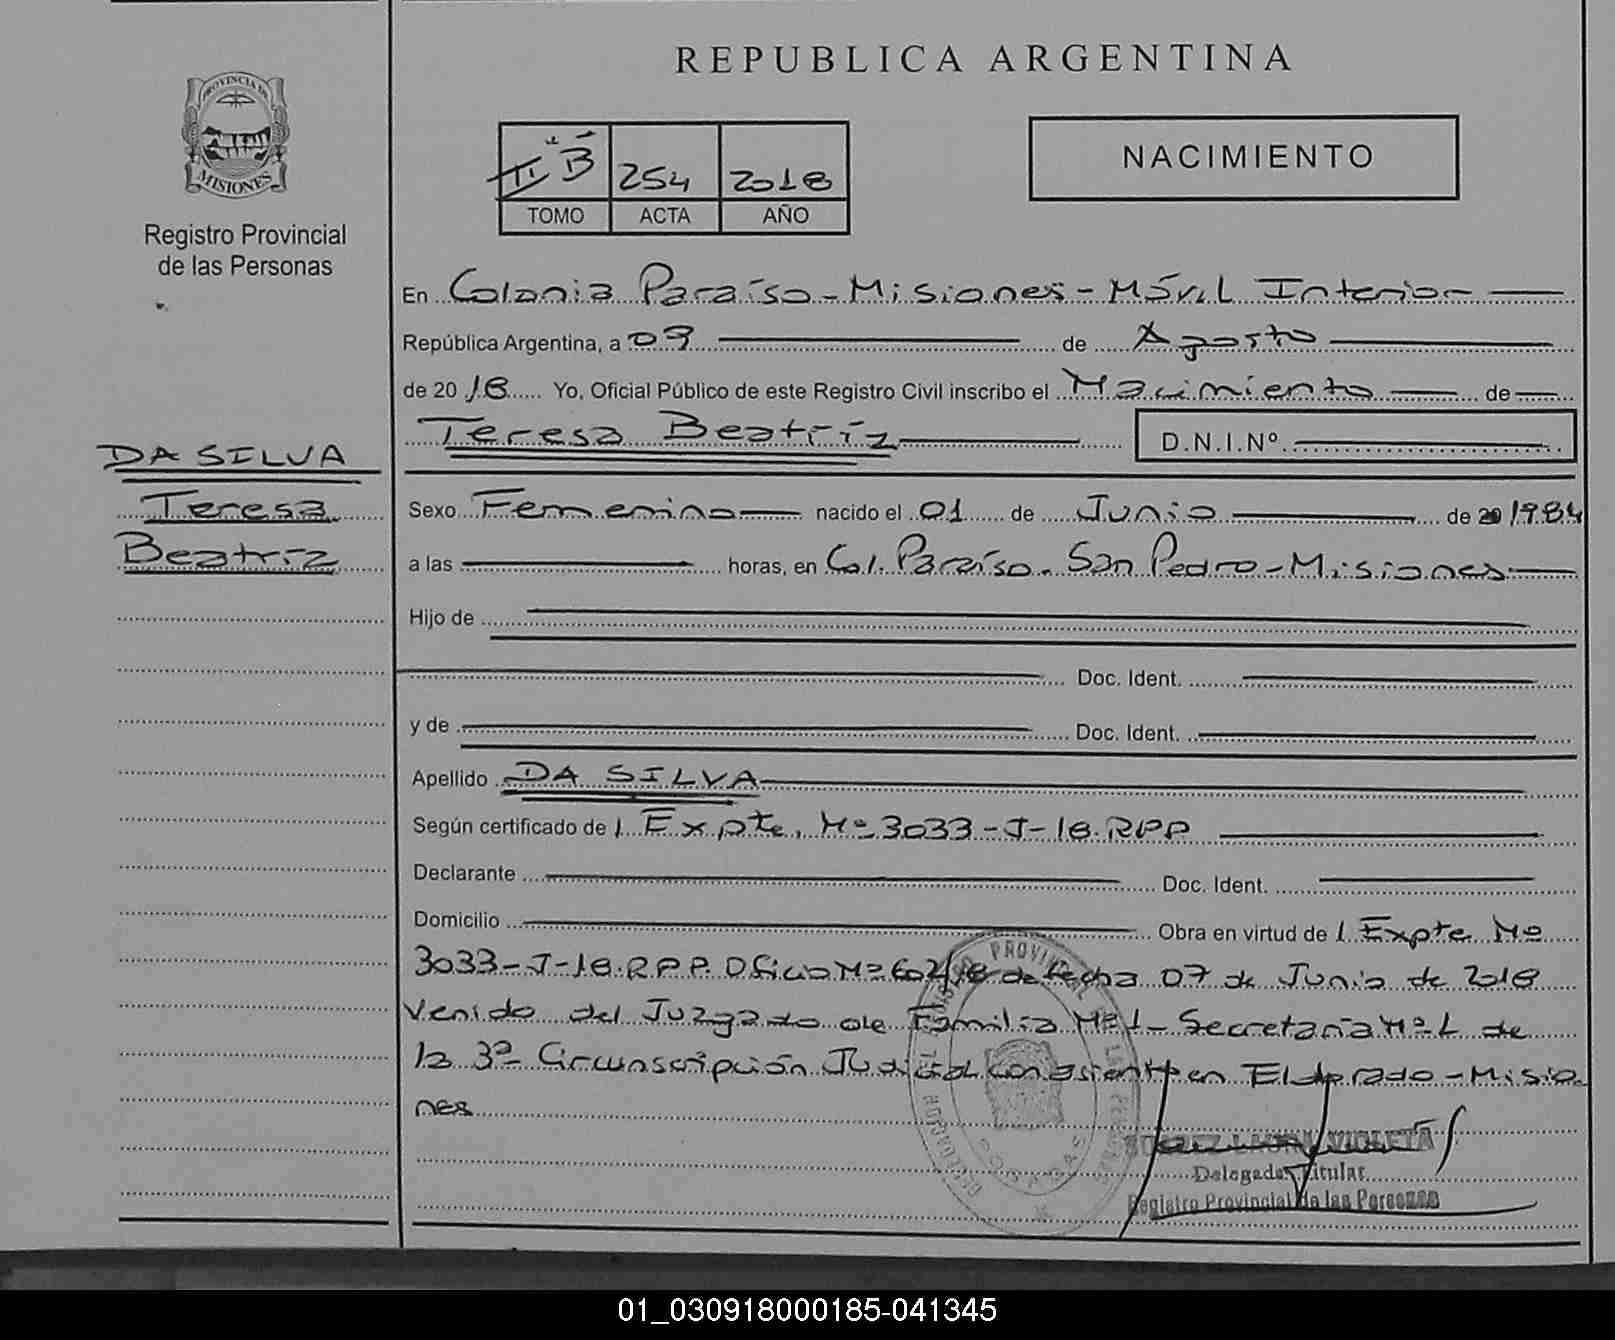 REPUBLICA ARGENTINA
PROVINCIA DE
MISIONES
Registro Provincial
de las Personas
II "B" 254 2018
TOMO ACTA AÑO
NACIMIENTO
En Colonia Paraíso - Misiones - Móvil Interior
República Argentina, a 09 de Agosto
de 20 18 Yo, Oficial Público de este Registro Civil inscribo el Nacimiento de
Teresa Beatriz D.N.I.Nº
DA SILVA
Teresa
Beatriz
Sexo Femenino nacido el 01 de Junio de 1984
a las horas, en Col. Paraíso. San Pedro - Misiones
Hijo de
Doc. Ident.
y de Doc. Ident.
Apellido DA SILVA
Según certificado de Expte. Nº 3033-J-18.RPP
Declarante Doc. Ident.
Domicilio Obra en virtud de Expte Nº
3033-J-18.RPP. Oficio Nº 602/18 de fecha 07 de Junio de 2018
Venido del Juzgado de Familia Nº 1 - Secretaria Nº 1 de
la 3ª Circunscripción Judicial con asiento en Eldorado - Misio
nes
PROVINCIAL
POSADAS
VIOLETA
Delegada Titular
Registro Provincial de las Personas
01_030918000185-041345